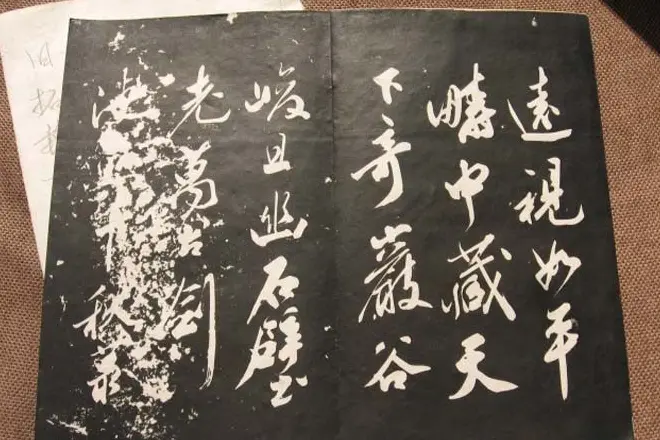 遠視如平
疇中藏天
下奇巖谷
峻且幽石壁
老萬古劍
池千秋
旧拓